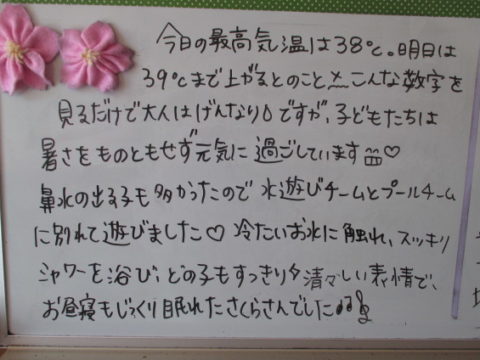 今日の最高気温は38℃。明日は
39℃まで上がるとのこと こんな数字を
見るだけで大人はげんなりですが、子どもたちは
暑さをものともせず元気に過ごしています♡
鼻水の出る子も多かったので水遊びチームとプールチーム
に別れて遊びました♡ 冷たいお水に触れ、スッキリ
シャワーを浴び、どの子もすっきり清々しい表情で、
お昼寝もじっくり眠れたさくらさんでした♪